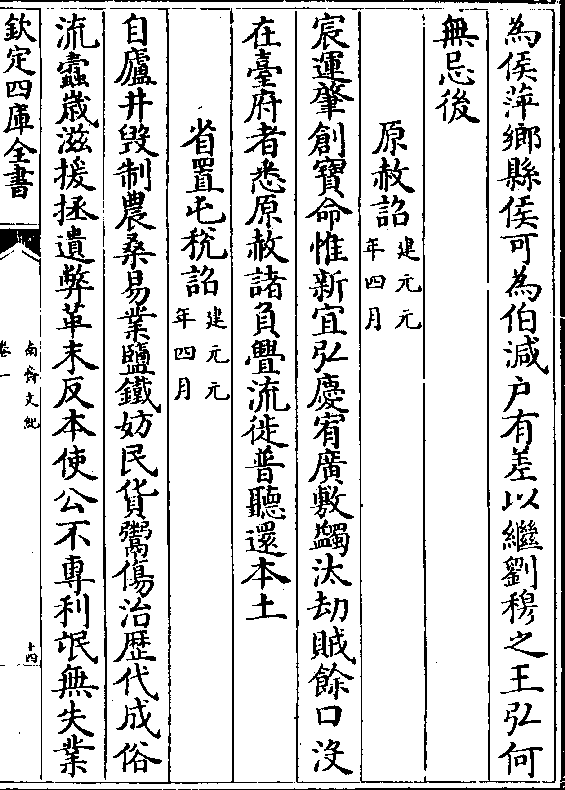 為侯萍鄉縣侯可為伯減户有差以繼劉穆之王弘何
無忌後
原赦詔建元元年四月
宸運肇創寶命惟新宜弘慶宥廣敷蠲汰劫賊餘口沒
在臺府者悉原赦諸負釁流徙普聽還本土
省置屯稅詔建元元年四月
自廬井毁制農桑易業鹽鐵妨民貨鬻傷治歴代成俗
流蠹歳滋援拯遺弊革末反本使公不專利氓無失業
欽定四庫全書
南齊文紀
卷一
十四